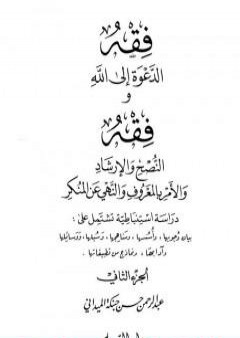 فِقْهُ
الدَّعْوَةِ إِلَى اللهِ
وَ
فِقْهُ
النُّصْحِ وَالإِرْشَادِ
وَالأَمْرِ بِالمَعْرُوفِ وَالنَّهْيِ عَنِ المُنْكَرِ
دِرَاسَة اسْتِنبَاطِيّة تَشْتَمِل عَلى :
بيَان وُجوبِهَا ، وَأُسُسِهَا ، وَمَنَاهِجهَا ، وَسُبُلِهَا ، وَوَسَائِلِهَا
وَآدَابهَا ، وَنَمَاذج مِن تَطْبِيقَاتِهَا
الجُزءُ الثَّانِي
عَبد الرحمن حسَن حَبَنَّكَة الميداني